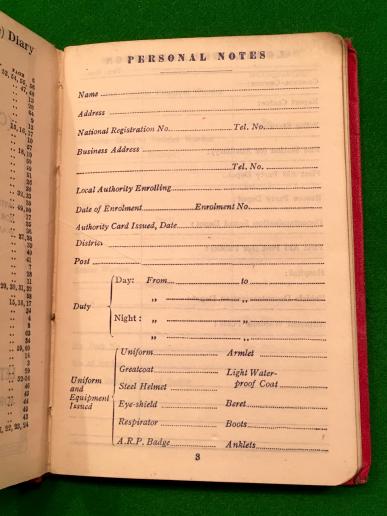 ) Diary
PAGE 6
PERSONAL NOTES
Name
Address
National Registration No. Tel. No.
Business Address
Tel. No.
Local Authority Enrolling
Date of Enrolment Enrolment No.
Authority Card Issued, Date
District
Post
Duty
Day: From to
„ „
Night: „ „
„ „
Uniform and Equipment Issued
Uniform Armlet
Greatcoat Light Water-
Steel Helmet proof Coat
Eye-shield Beret
Respirator Boots
A.R.P. Badge Anklets
3